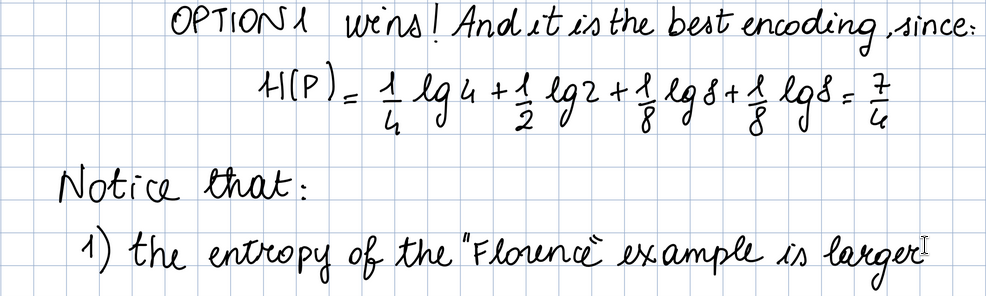 OPTION 1 wins! And it is the best encoding, since:
H(P) = 1/4 lg 4 + 1/2 lg 2 + 1/8 lg 8 + 1/8 lg 8 = 7/4
Notice that:
1) the entropy of the "Florence" example is larger